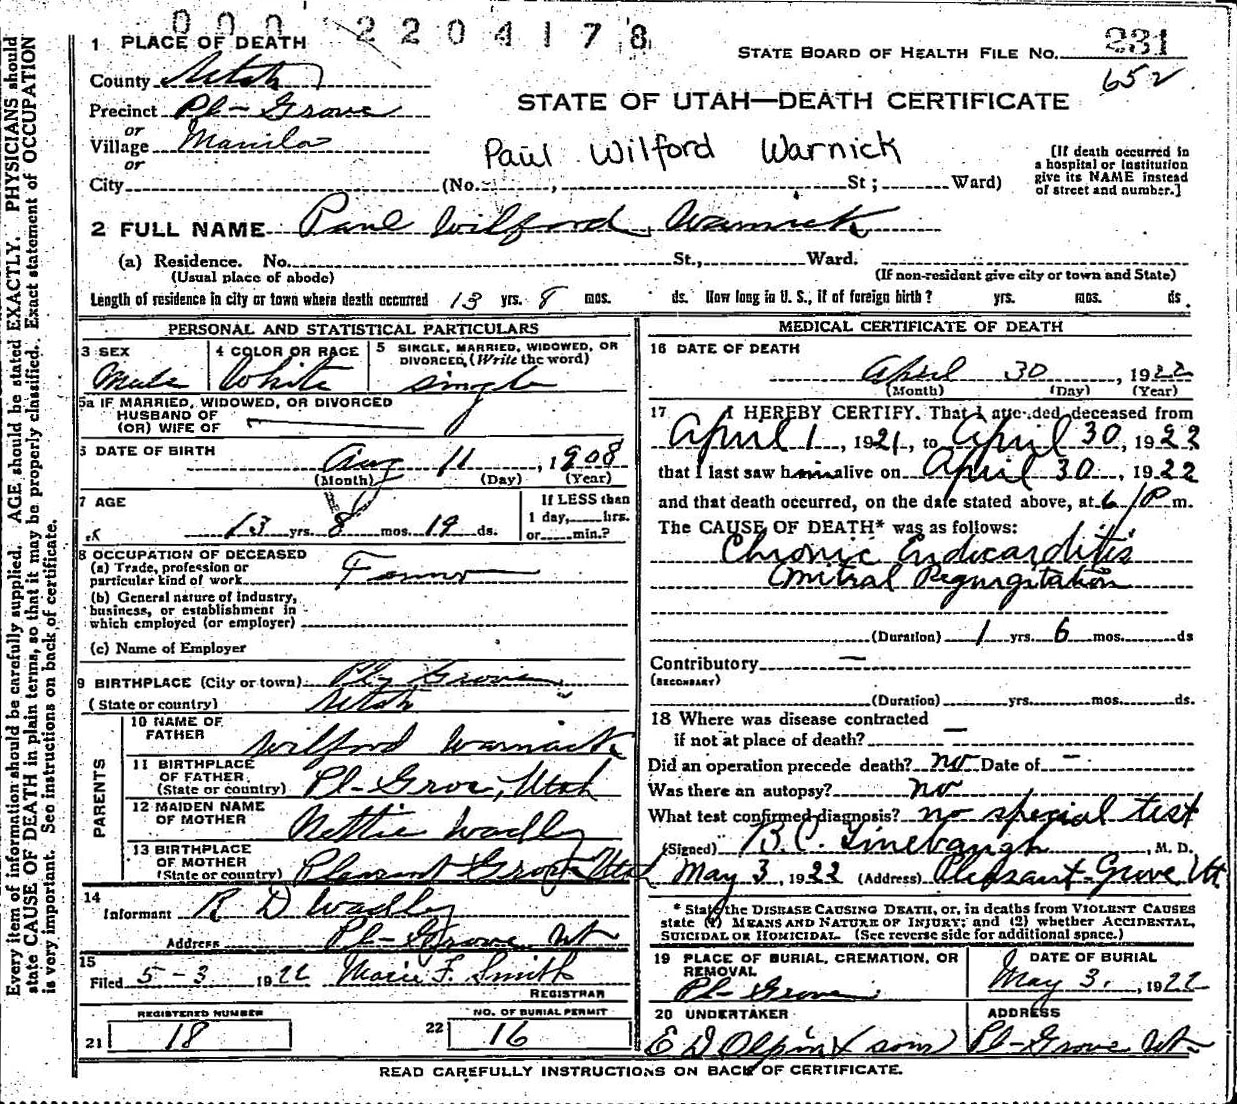 0 0 0 2 2 0 4 1 7 8
1 PLACE OF DEATH
STATE BOARD OF HEALTH FILE NO. 231
652
County Utah
Precinct Pl- Grove
or
Village Manila
or
City (No. , St ; Ward)
STATE OF UTAH—DEATH CERTIFICATE
Paul Wilford Warnick
[If death occurred in
a hospital or institution
give its NAME instead
of street and number.]
2 FULL NAME Paul Wilford Warnick
(a) Residence. No. St., Ward.
(Usual place of abode) (If non-resident give city or town and State)
Length of residence in city or town where death occurred 13 yrs. 8 mos. ds. How long in U. S., if of foreign birth? yrs. mos. ds.
PERSONAL AND STATISTICAL PARTICULARS
3 SEX
Male
4 COLOR OR RACE
White
5 SINGLE, MARRIED, WIDOWED, OR
DIVORCED, (Write the word)
single
5a IF MARRIED, WIDOWED, OR DIVORCED
HUSBAND OF
(OR) WIFE OF
6 DATE OF BIRTH
Aug 11, 1908
(Month) (Day) (Year)
7 AGE
13 yrs. 8 mos. 19 ds.
If LESS than
1 day, hrs.
or min.?
8 OCCUPATION OF DECEASED
(a) Trade, profession or
particular kind of work Farmer
(b) General nature of industry,
business, or establishment in
which employed (or employer)
(c) Name of Employer
9 BIRTHPLACE (City or town) Pl- Grove,
(State or country) Utah
PARENTS
10 NAME OF
FATHER Wilford Warnick
11 BIRTHPLACE
OF FATHER
(State or country) Pl- Grove, Utah
12 MAIDEN NAME
OF MOTHER Nettie Wadley
13 BIRTHPLACE
OF MOTHER
(State or country) Pleasant Grove Utah
14
Informant R D Wadley
Address Pl- Grove Ut
15
Filed 5-3 1922 Marie F. Smith
REGISTRAR
REGISTERED NUMBER
21 18
NO. OF BURIAL PERMIT
22 16
MEDICAL CERTIFICATE OF DEATH
16 DATE OF DEATH
April 30, 1922
(Month) (Day) (Year)
17 I HEREBY CERTIFY. That I attended deceased from
April 1, 1921, to April 30, 1922
that I last saw him alive on April 30, 1922
and that death occurred, on the date stated above, at 6/P m.
The CAUSE OF DEATH* was as follows:
Chronic Endicarditis
Mitral Regurgitation
(Duration) 1 yrs. 6 mos. ds
Contributory —
(SECONDARY)
(Duration) yrs. mos. ds.
18 Where was disease contracted
if not at place of death? —
Did an operation precede death? no Date of —
Was there an autopsy? no
What test confirmed diagnosis? no special test
(Signed) B.C. Linebaugh, M. D.
May 3, 1922 (Address) Pleasant Grove Ut
* State the DISEASE CAUSING DEATH, or, in deaths from VIOLENT CAUSES
state (1) MEANS AND NATURE OF INJURY; and (2) whether ACCIDENTAL,
SUICIDAL OR HOMICIDAL. (See reverse side for additional space.)
19 PLACE OF BURIAL, CREMATION, OR
REMOVAL
Pl- Grove.
DATE OF BURIAL
May 3., 1922
20 UNDERTAKER
E D Olpin & (sons)
ADDRESS
Pl- Grove Ut-
READ CAREFULLY INSTRUCTIONS ON BACK OF CERTIFICATE.
Every item of information should be carefully supplied. AGE should be stated EXACTLY. PHYSICIANS should
state CAUSE OF DEATH in plain terms, so that it may be properly classified. Exact statement of OCCUPATION
is very important. See instructions on back of certificate.